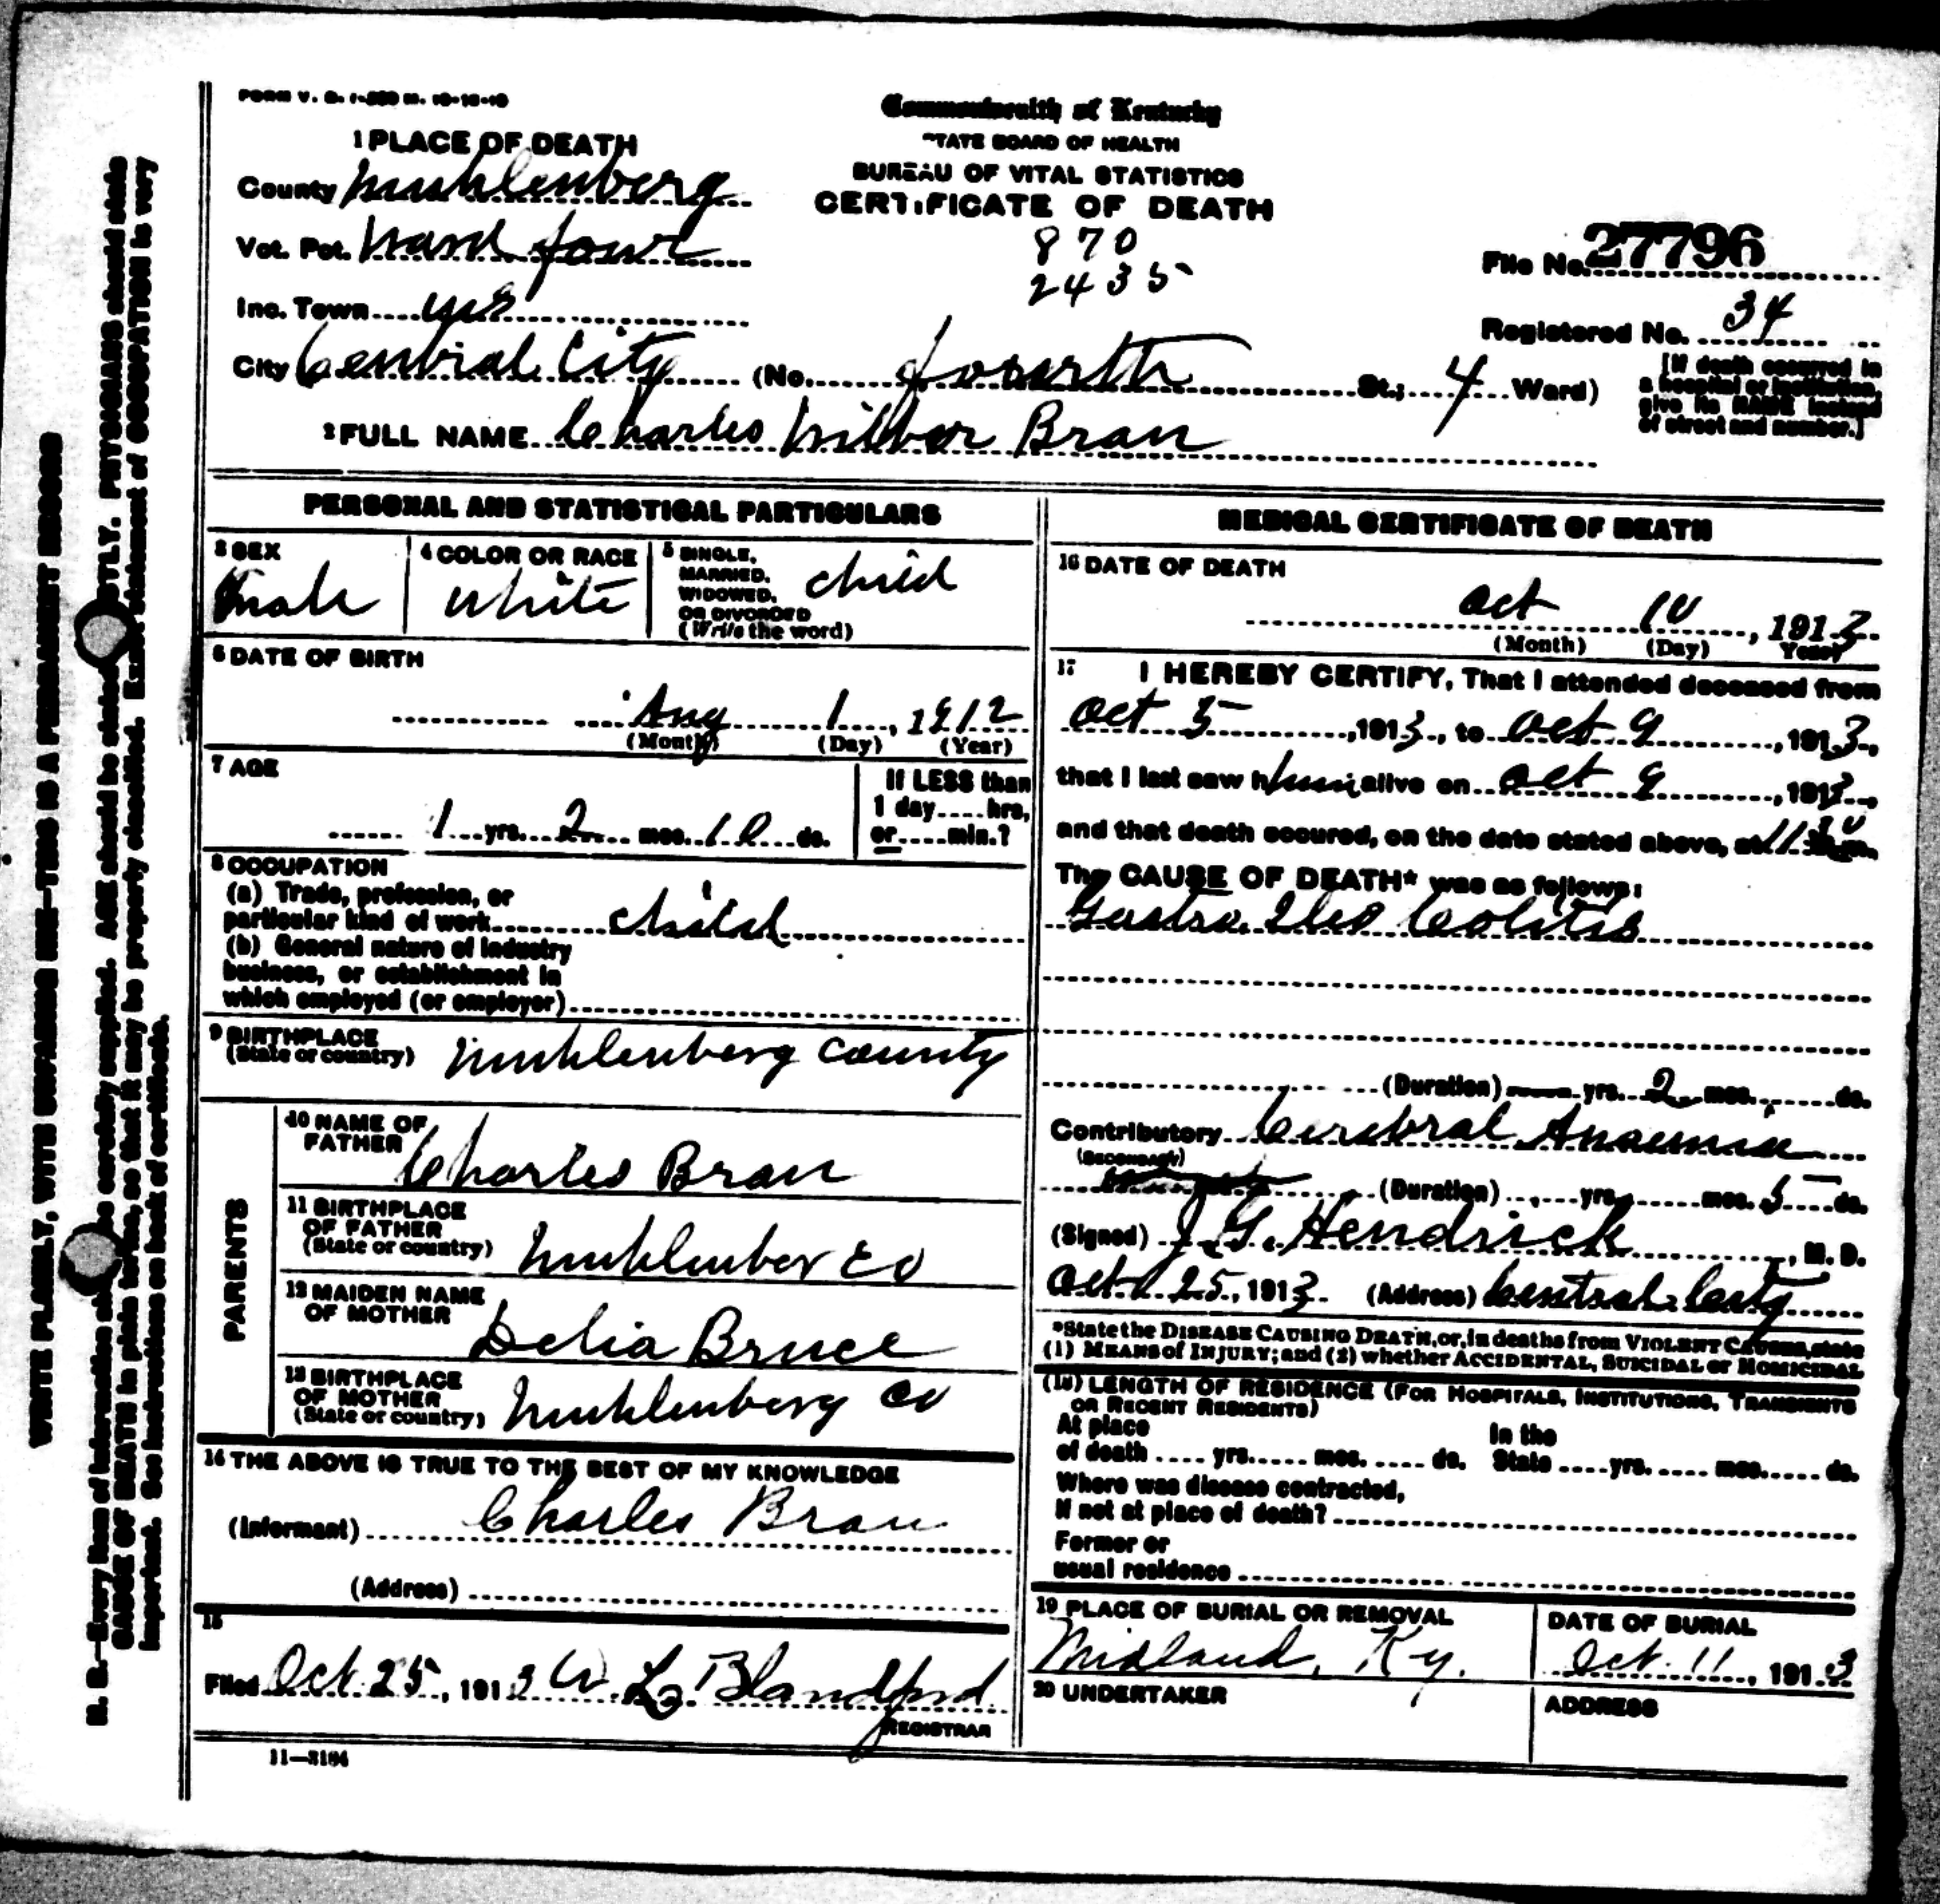 FORM V. S. 1-350 M. 10-15-10
Commonwealth of Kentucky
STATE BOARD OF HEALTH
BUREAU OF VITAL STATISTICS
CERTIFICATE OF DEATH
870
2435
1 PLACE OF DEATH
County Muhlenberg
Vot. Pct. Ward four
Inc. Town yes
City Central City (No. fourth St.; 4 Ward)
File No. 27796
Registered No. 34
[If death occurred in
a hospital or institution,
give its NAME instead
of street and number.]
2 FULL NAME Charles Wilber Bran
PERSONAL AND STATISTICAL PARTICULARS
3 SEX
Male
4 COLOR OR RACE
White
5 SINGLE,
MARRIED,
WIDOWED,
OR DIVORCED
(Write the word)
child
6 DATE OF BIRTH
Aug 1, 1912
(Month) (Day) (Year)
7 AGE
1 yrs. 2 mos. 10 ds.
If LESS than
1 day....hrs,
or....min.?
8 OCCUPATION
(a) Trade, profession, or
particular kind of work child
(b) General nature of industry
business, or establishment in
which employed (or employer)
9 BIRTHPLACE
(State or country) Muhlenberg County
PARENTS
10 NAME OF
FATHER Charles Bran
11 BIRTHPLACE
OF FATHER
(State or country) Muhlenber Co
12 MAIDEN NAME
OF MOTHER Delia Bruce
13 BIRTHPLACE
OF MOTHER
(State or country) Muhlenberg Co
14 THE ABOVE IS TRUE TO THE BEST OF MY KNOWLEDGE
(Informant) Charles Bran
(Address)
15
Filed Oct. 25, 1913 W. L. Blandford
REGISTRAR
11-3184
MEDICAL CERTIFICATE OF DEATH
16 DATE OF DEATH
Oct 10, 1913
(Month) (Day) Year)
17 I HEREBY CERTIFY, That I attended deceased from
Oct 5, 1913, to Oct 9, 1913,
that I last saw him alive on Oct 9, 1913,
and that death occured, on the date stated above, at 11:30 m.
The CAUSE OF DEATH* was as follows:
Gastro Ileo Colitis
(Duration) yrs. 2 mos. ds.
Contributory Cerebral Anaemia
(SECONDARY)
(Duration) yrs. mos. 5 ds.
(Signed) J. G. Hendrick, M. D.
Oct 25, 1913 (Address) Central City
*State the DISEASE CAUSING DEATH, or, in deaths from VIOLENT CAUSES, state
(1) MEANS of INJURY; and (2) whether ACCIDENTAL, SUICIDAL or HOMICIDAL
(18) LENGTH OF RESIDENCE (FOR HOSPITALS, INSTITUTIONS, TRANSIENTS
OR RECENT RESIDENTS)
At place
of death .... yrs..... mos. ..... ds.
In the
State ....yrs. .... mos..... ds.
Where was disease contracted,
If not at place of death?
Former or
usual residence
19 PLACE OF BURIAL OR REMOVAL
Midland, Ky.
DATE OF BURIAL
Oct. 11, 1913
20 UNDERTAKER
ADDRESS
WRITE PLAINLY, WITH UNFADING INK—THIS IS A PERMANENT RECORD
N. B.—Every item of information should be carefully supplied. AGE should be stated EXACTLY. PHYSICIANS should state
CAUSE OF DEATH in plain terms, so that it may be properly classified. Exact statement of OCCUPATION is very
important. See instructions on back of certificate.